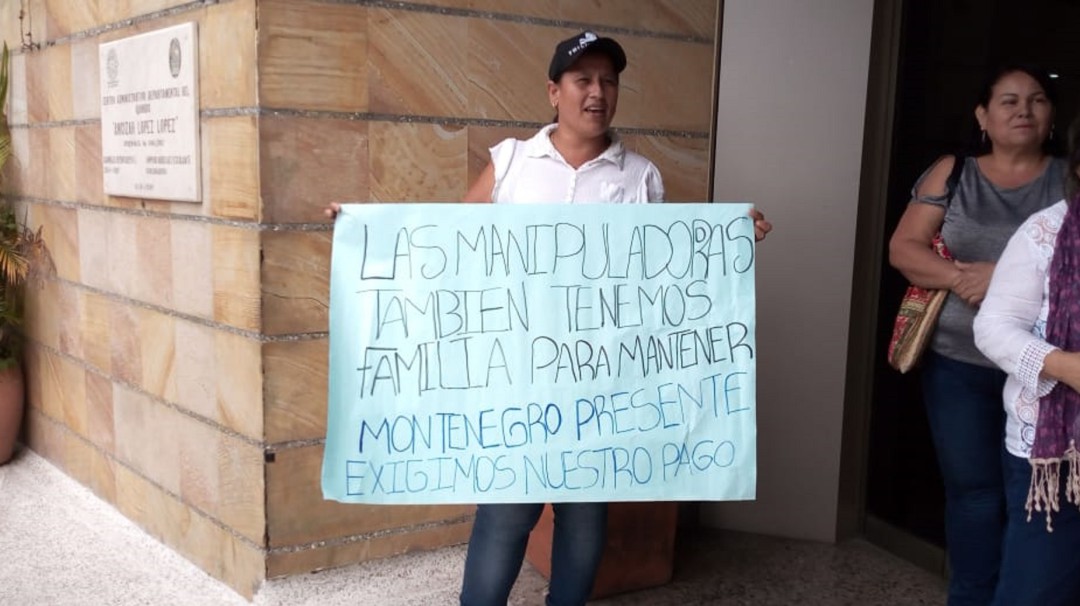 CENTRO ADMINISTRATIVO DEPARTAMENTAL DEL
QUINDIO
"ANCIZAR LOPEZ LOPEZ"
LAS MANIPULADORAS
TAMBIEN TENEMOS
FAMILIA PARA MANTENER
MONTENEGRO PRESENTE
EXIGIMOS NUESTRO PAGO